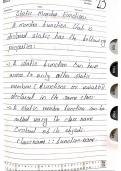 23
Static Member Functions
A member function that is
declared static has the following
properties:
→ A static function can have
access to only other static
members (functions or variable)
declared in the same class.
→ A static member function can be
called using the class name
(instead of its object)
Class name :: function name